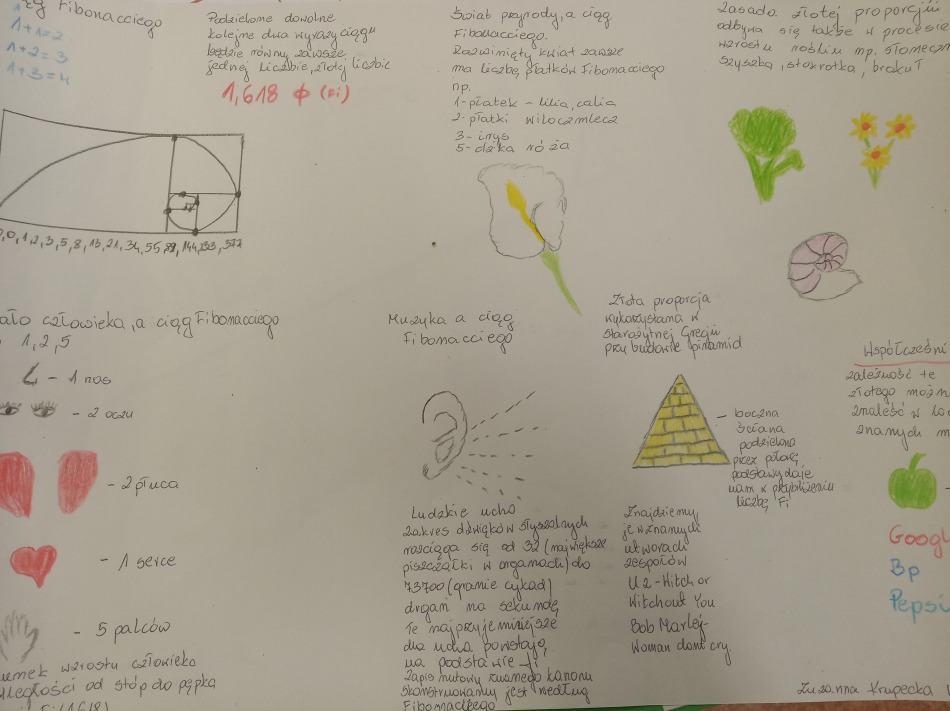 Fibonacciego
1+1=2
1+2=3
1+3=4
Podzielone dowolne
kolejne dwa wyrazy ciągu
będzie równy zawsze
jednej liczbie, złotej liczbie
1,618 ϕ (Fi)
Świat przyrody, a ciąg
Fibonacciego.
Rozwinięty kwiat zawsze
ma liczbę płatków Fibonacciego
np.
1-płatek - lilia, calia
2-płatki wiloczmlecz
3- irys
5- dzika róża
Zasada złotej proporcji
odbywa się także w procesie
wzrostu roślin mp. słonecz
szyszka, stokrotka, brokuł
0,1,2,3,5,8,13,21,34,55,89,144,233,377
ciało człowieka, a ciąg Fibonacciego
1,2,5
- 1 nos
- 2 oczu
- 2 płuca
- 1 serce
- 5 palców
wzrostu człowieka
od stóp do pępka
Muzyka a ciąg
Fibonacciego
Ludzkie ucho
zakres dźwięków słyszalnych
rozciąga się od 32 (największe
piszczałki w organach) do
73700 (granie cykad)
drgań na sekundę
Te najprzyjemniejsze
dla ucha powstają
na podstawie fi
Zapis nutowy zwanego kanonu
skonstruowany jest według
Fibonacciego
Złota proporcja
wykorzystana w
starożytnej Grecji
przy budowie piramid
- boczna
ściana
podzielona
przez połowę
podstawy daje
nam w przybliżeniu
liczbę Fi
Znajdziemy
je w znanych
utworach
zespołów
U2-Witch or
Witchout You
Bob Marley-
Woman dont cry.
Współcześni
zależność te
złotego możn
znaleść w lo
znanych m
Googl
Bp
Pepsi
Zuzanna Krupecka